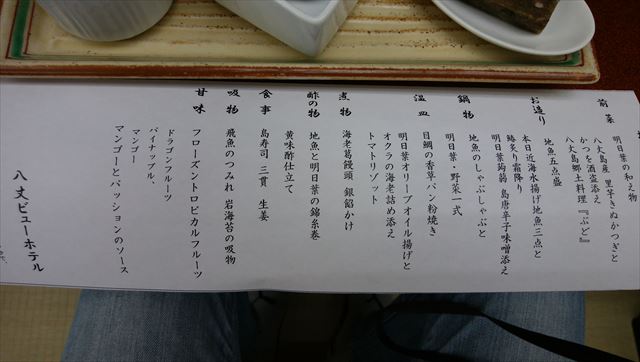 前菜
明日葉の和え物
八丈島産 里芋きぬかつぎと
かつを酒盗添え
八丈島郷土料理『ぶど』
お造り
地魚五点盛
本日近海水揚げ地魚三点と
鰆炙り霜降り
明日葉蒟蒻 島唐辛子味噌添え
鍋物
地魚のしゃぶしゃぶと
明日葉・野菜一式
温皿
目鯛の香草パン粉焼き
明日葉オリーブオイル揚げと
オクラの海老詰め添え
トマトリゾット
煮物
海老葛饅頭 銀餡かけ
酢の物
地魚と明日葉の錦糸巻
黄味酢仕立て
食事
島寿司 三貫 生姜
吸物
飛魚のつみれ 岩海苔の吸物
甘味
フローズントロピカルフルーツ
ドラゴンフルーツ
パイナップル、
マンゴー
マンゴーとパッションのソース
八丈ビューホテル